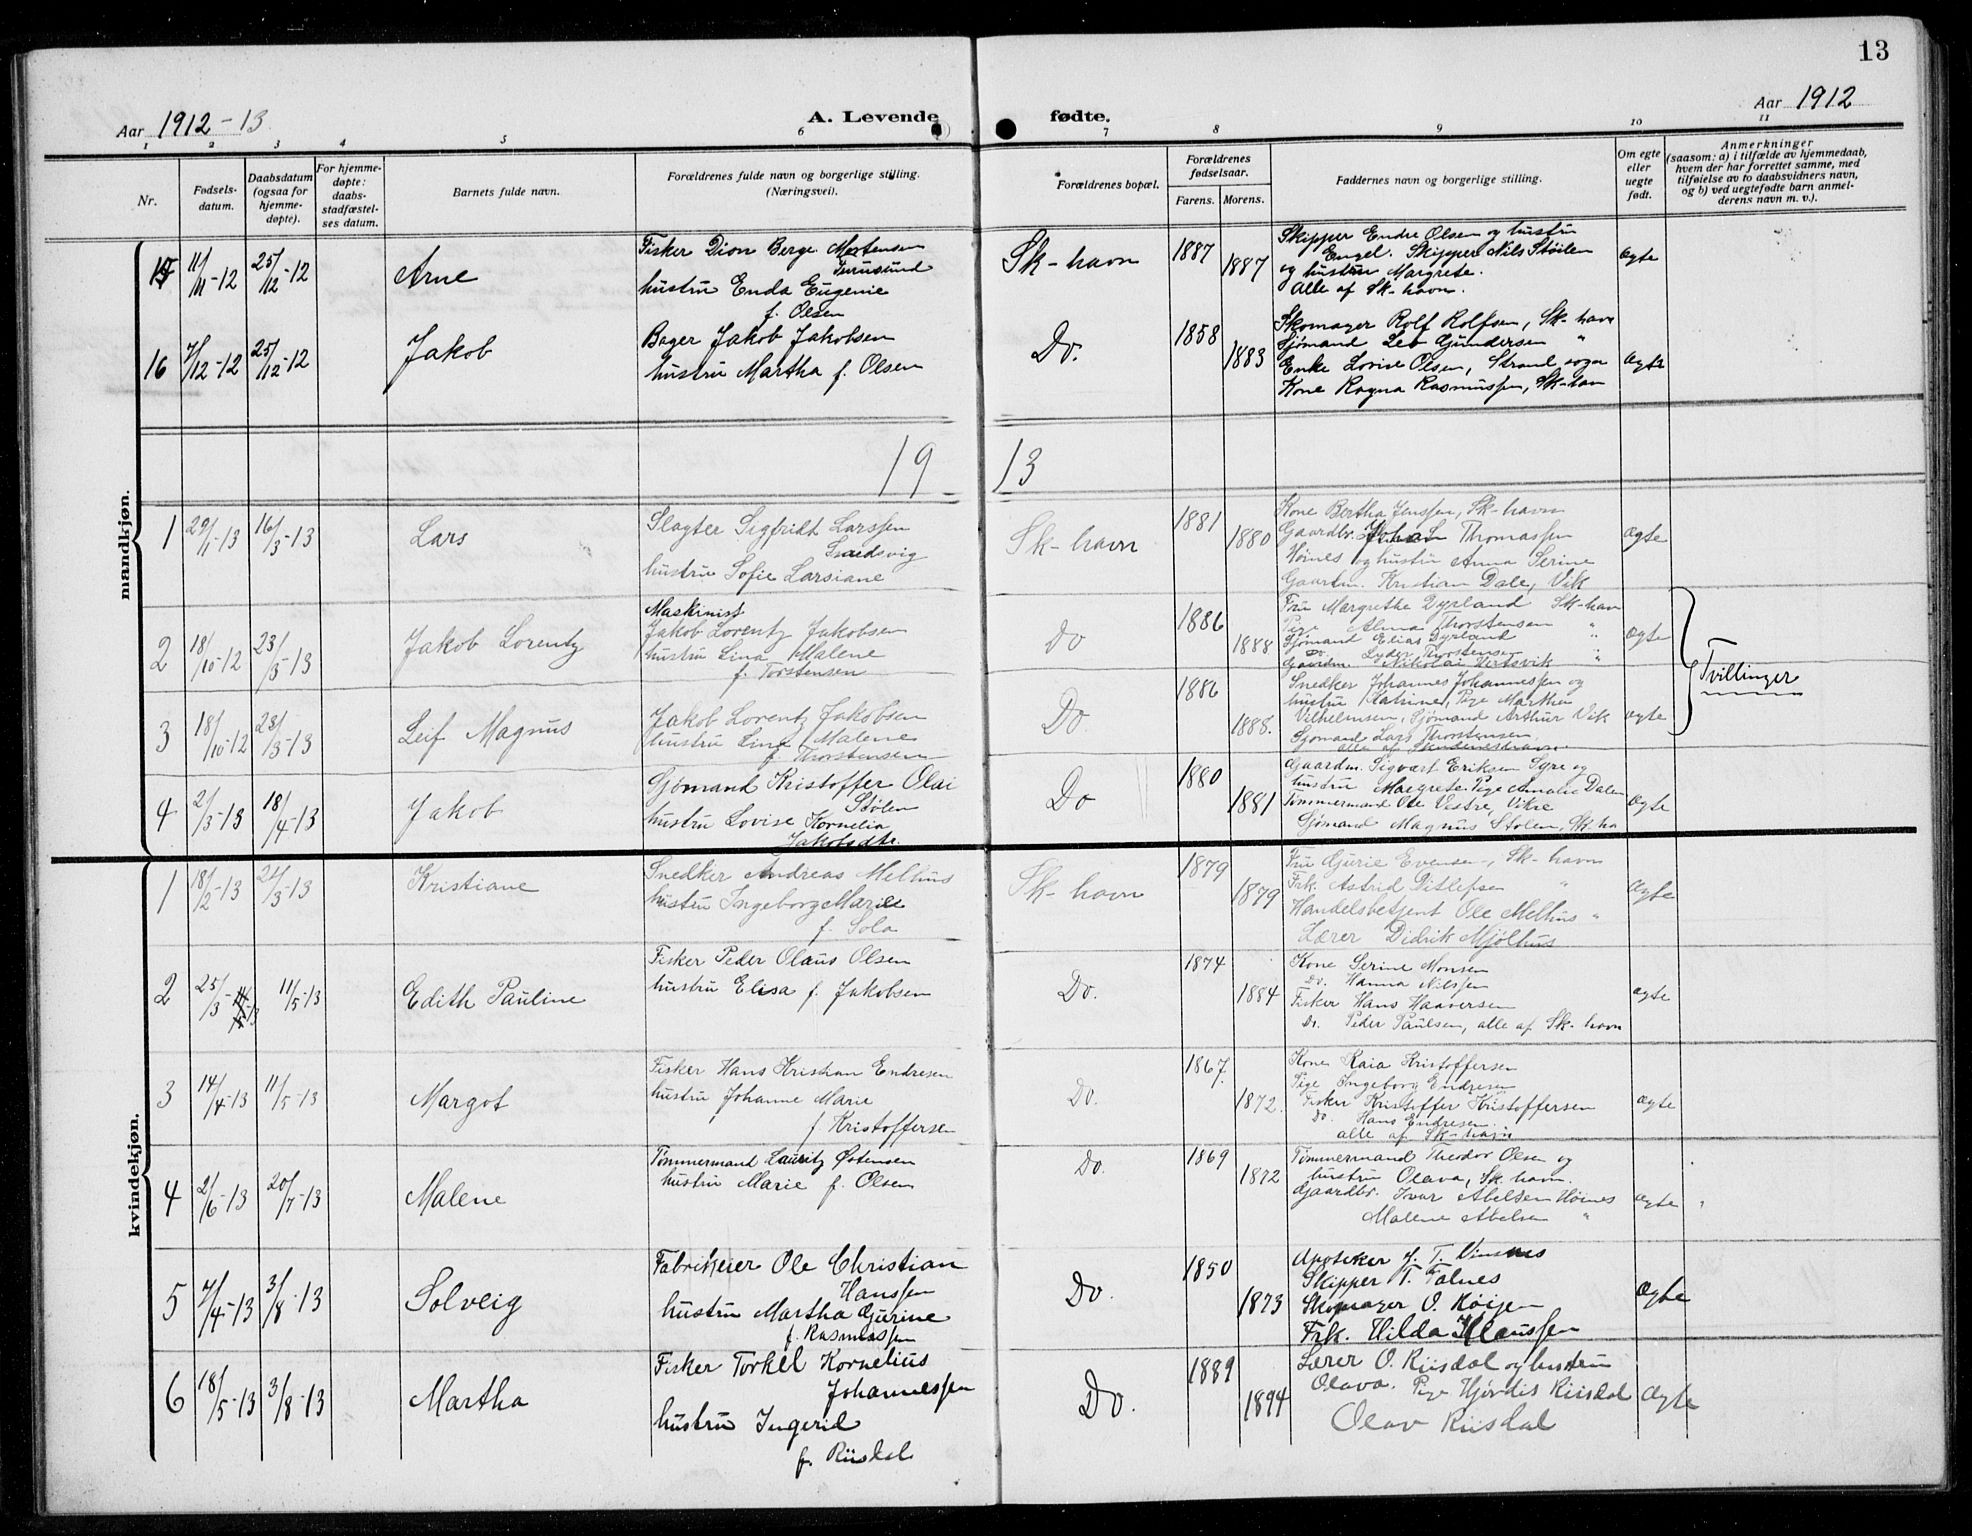 13
Aar 1912-13. A. Levende fødte. Aar 1912
1 2 3 4 5 6 7 8 9 10 11
Nr.
Fødsels-
datum.
Daabsdatum
(ogsaa for
hjemme-
døpte).
For hjemme-
døpte:
daabs-
stadfæstel-
ses datum.
Barnets fulde navn.
Forældrenes fulde navn og borgerlige stilling.
(Næringsvei).
Forældrenes bopæl.
Forældrenes
fødselsaar.
Farens. Morens.
Faddernes navn og borgerlige stilling.
Om egte
eller
uegte
født.
Anmerkninger
(saasom: a) i tilfælde av hjemmedaab,
hvem der har forrettet samme, med
tilføielse av to daabsvidners navn,
og b) ved uegtefødte barn anmel-
derens navn m. v.).
mandkjøn.
15 11/11-12 25/12-12 Arne
Fisker Dion Berge Mortensen
hustru Enda Eugenie
f. Olsen
Sk-havn 1887 1887
Skipper Endre Olsen og hustru
Engel. Skipper Nils Støilen
og hustru Margrete.
Alle af Sk-havn.
Ægte
16 7/12-12 25/12-12 Jakob
Bager Jakob Jakobsen
hustru Martha f. Olsen
Do. 1858 1883
Skomager Rolf Rolfsen, Sk-havn
Sjømand Leo Gundersen "
Enke Lovise Olsen, Strand sogn
Kone Ragna Rasmussen, Sk-havn
Ægte
19 13
1 29/1-13 16/3-13 Lars
Slagter Sigfridt Larssen
Sandvig
hustru Sofie Larsiane
Sk-havn 1881 1880
Kone Bertha Jenssen, Sk-havn
Gaardbr. Johan Thomassen
Høines og hustru Anna Serine
Gaardm. Kristian Dale, Vik
Ægte
2 18/10-12 23/3-13 Jakob Lorentz
Maskinist
Jakob Lorentz Jakobsen
hustru Lina Malene
f. Torstensen
Do 1886 1888
Fru Margrethe Dyrland Sk-havn
Pige Alma Thorstensen "
Sjømand Elias Dyrland "
Do. Lyder Thorstensen "
Gaardm. Nikolai
Ægte
Tvillinger
3 18/10-12 23/3-13 Leif Magnus
Jakob Lorentz Jakobsen
hustru Lina Malene
f. Thorstensen
Do 1886 1888.
Snedker Johannes Johannessen og
hustru Katrine, Pige Marthe
Vilhelmsen, Sjømand Arthur Vik
Sjømand Lars Thorstensen.
alle af Skudeneshavn.
Ægte
4 2/3-13 18/4-13 Jakob
Sjømand Kristoffer Olai
Stølen
hustru Lovise Kornelia
Jakobsdtr.
Do 1880 1881
Gaardm. Sigvart Eriksen Syre og
hustru Margrete. Pige Amalie Dalen
Tømmermand Ole Vestre, Vikre
Sjømand Magnus Stolen, Sk-ha
Ægte
kvindekjøn.
1 18/2-13 24/3-13 Kristiane
Snedker Andreas Melhus
hustru Ingeborg Marie
f. Sola
Sk-havn 1879 1879
Fru Gurie Evensen, Sk-havn
Frk. Astrid Ditlefsen "
Handelsbetjent Ole Melhus "
Lærer Didrik Mjølhus
Ægte
2 25/3-13 11/5-13 Edith Pauline
Fisker Peder Olaus Olsen
hustru Elisa f. Jakobsen
Do. 1874 1884
Kone Serine Monsen
Do. Hanna Nilssen
Fisker Hans Haaversen
Do. Peder Paulsen, alle af Sk-havn
Ægte
3 14/4-13 11/5-13 Margot
Fisker Hans Kristian Endresen
hustru Johanne Marie
f Kristoffersen
Do. 1867. 1872.
Kone Raia Kristoffersen
Pige Ingeborg Endresen
Fisker Kristoffer Kristoffersen
Do. Hans Endresen.
alle af Sk-havn
Ægte
4 2/6-13 20/7-13 Malene
Tømmermand Lauritz Østensen
hustru Marie f. Olsen
Do. 1869 1872
Tømmermand Theodor Olsen og
hustru Olava, Sk. havn.
Gaardbr. Ivar Abelsen Høines
Malene Abelsen "
Ægte
5 7/4-13 3/8-13 Solveig
Fabrikeier Ole Christian
Hanssen
hustru Martha Gurine
f. Rasmussen
Do. 1850 1873
Apoteker J. T. Vinsnes
Skipper T. Falnes
Skomager O. Køijen
Frk. Hilda Klaussen
Ægte
6 18/5-13 3/8-13 Martha
Fisker Torkel Kornelius
Johannessen
hustru Ingerid
f. Riisdal
Do. 1889 1894
Lærer O. Riisdal og hustru
Olava. Pige Hjørdis Riisdal
Olav Riisdal
Ægte